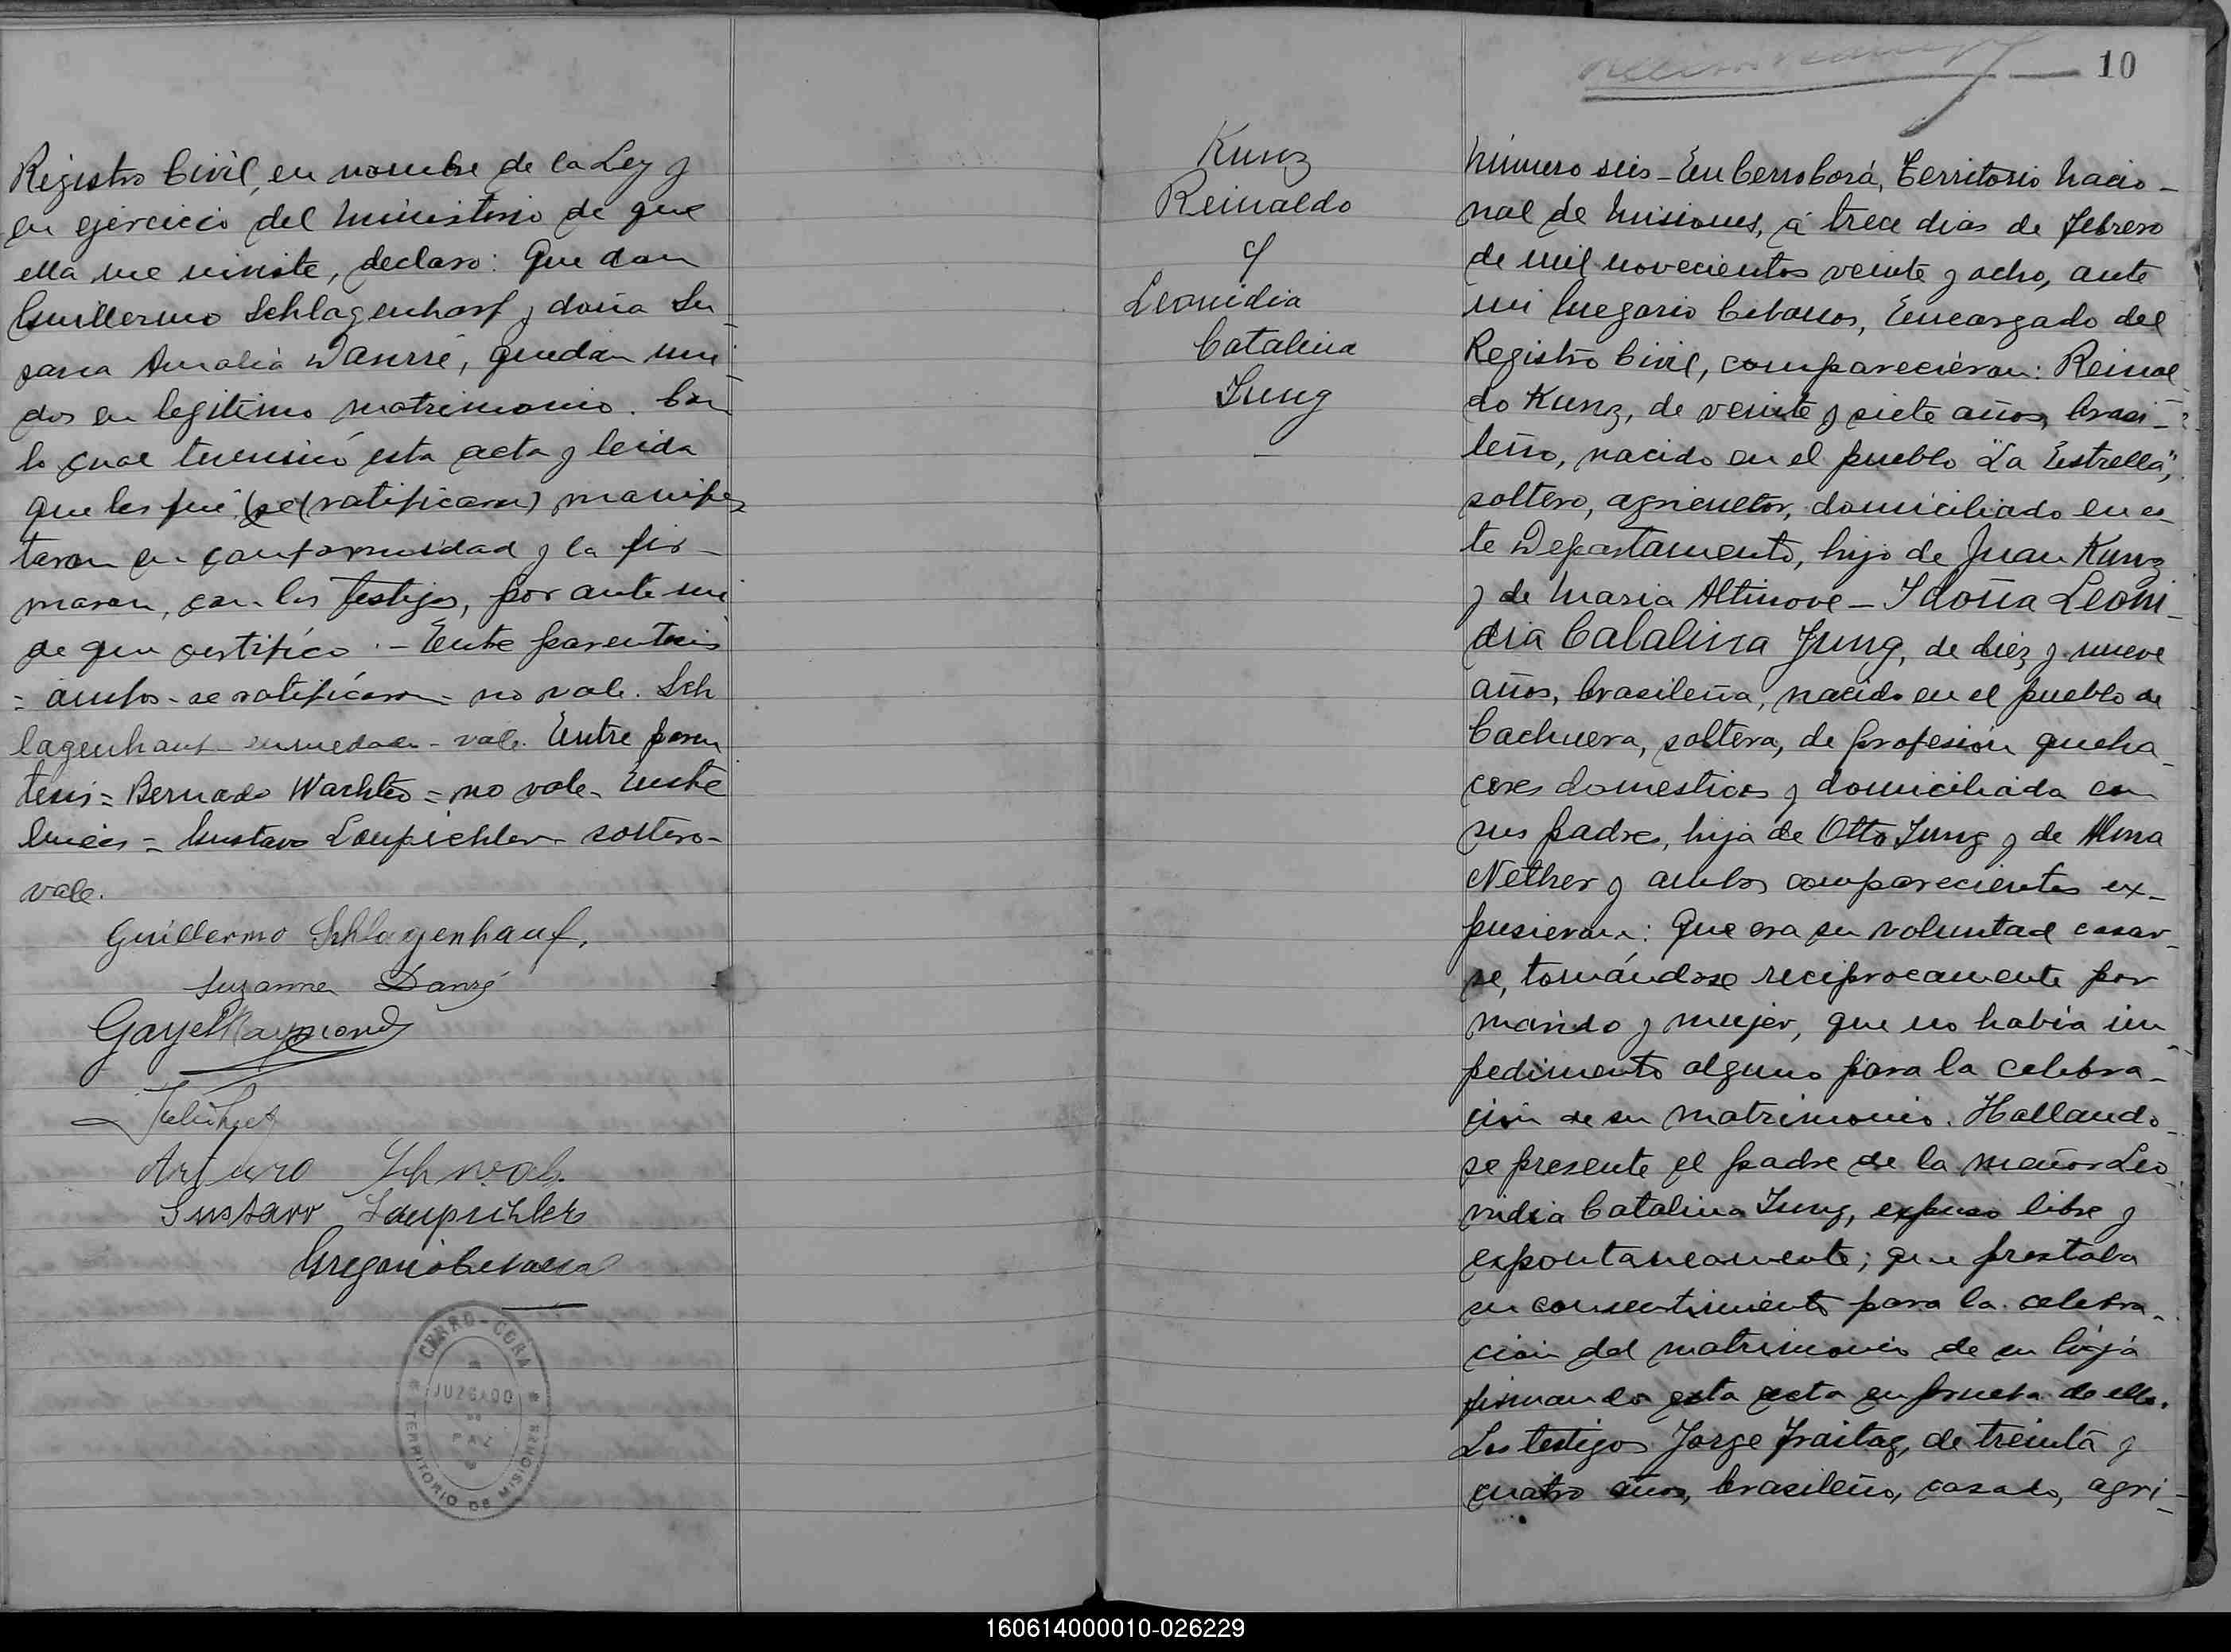 Registro Civil, en nombre de la Ley y
en ejercicio del ministerio de que
ella me inviste, declaro: Que don
Guillermo Schlagenhauf y doña Su_
sana Amalia Danrré, quedan uni_
dos en legitimo matrimonio. Con
lo cual terminó esta acta y leida
que les fué, (se (ratificaron) manifes
taron su conformidad y la fir_
maron, con los testigos, por ante mi
de que certifico.- Entre parentesis
= ambos - se ratificaron - no vale. Sch
lagenhauf - enmedado - vale. Entre paren
tesis = Bernado Wachter = no vale. Entre
lineas = Gustavo Laupichler - soltero -
vale.
Guillermo Schlagenhauf.
Suzanne Danré
Gayet Raymond
Arturo Schwab.
Gustavo Laupichler
Gregorio Cevallos
CERRO-CORA
JUZGADO
DE
PAZ
TERRITORIO DE MISIONES
10
Kunz
Reinaldo
y
Leonidia
Catalina
Jung
Número seis - En Cerro Corá, Territorio Nacio_
nal de Misiones, á trece dias de febrero
de mil novecientos veinte y ocho, ante
mi Gregorio Cevallos, Encargado del
Registro Civil, comparecieron: Reinal_
do Kunz, de veinte y siete años, brasi_
leño, nacido en el pueblo "La Estrella",
soltero, agricultor, domiciliado en es_
te Departamento, hijo de Juan Kunz
y de Maria Altinove - Y doña Leoni_
dia Catalina Jung, de diez y nueve
años, brasileña, nacida en el pueblo de
Cachuera, soltera, de profesión queha_
ceres domesticos y domiciliada con
sus padres, hija de Otto Jung y de Alma
Nether y ambos comparecientes ex_
pusieron: Que era su voluntad casar_
se, tomándose reciprocamente por
marido y mujer, que no habia im_
pedimento alguno para la celebra_
ción de su matrimonio. Hallando_
se presente el padre de la menor Leo_
nidia Catalina Jung, expuso libre y
espontaneamente; que prestaba
su consentimiento para la celebra_
ción del matrimonio de su hija
firmando esta acta en prueba de ello.
Los testigos Jorge Fraitag, de treinta y
cuatro años, brasileño, casado, agri_
160614000010-026229